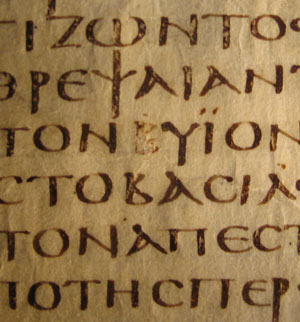 ΓΙΖΩΝΤΟ
ΘΡΕΨΑΙΑΝΤ
ΤΟΝ ΥΪΟΝ
ϹΤΟΒΑϹΙΛ
ΤΟΝΑΠΕϹΤ
ΠΟΤΗϹΠΕΡ